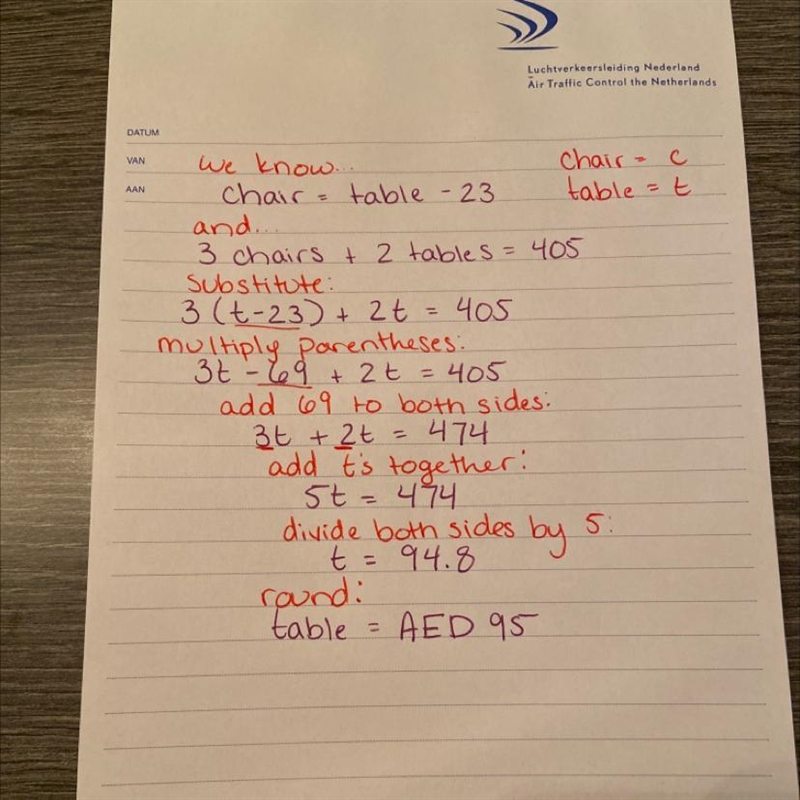 Luchtverkeersleiding Nederland
Air Traffic Control the Netherlands
DATUM
VAN
AAN
we know...
chair = c
chair = table - 23
table = t
and...
3 chairs + 2 tables = 405
substitute:
3 (t-23) + 2t = 405
multiply parentheses:
3t - 69 + 2t = 405
add 69 to both sides:
3t + 2t = 474
add t's together:
5t = 474
divide both sides by 5:
t = 94.8
round:
table = AED 95